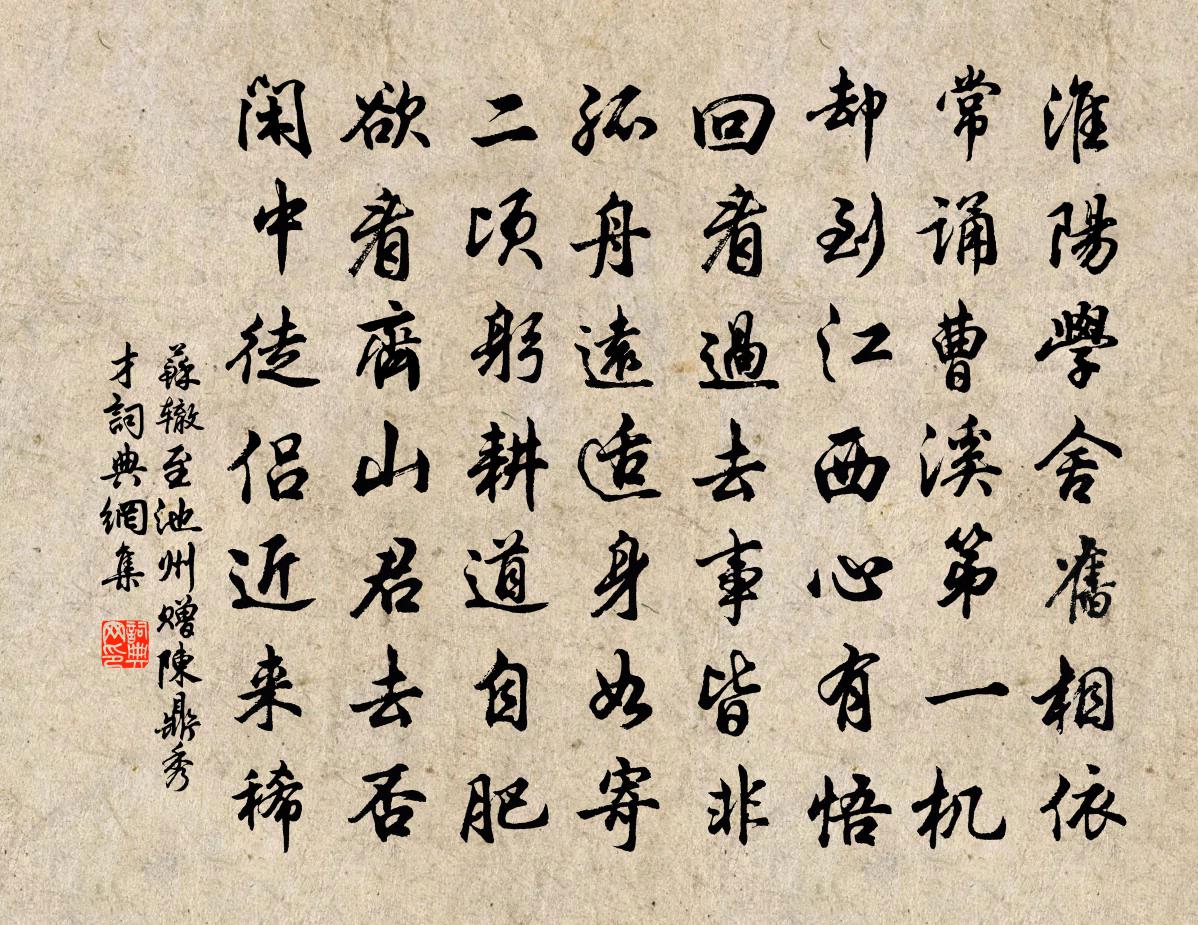 淮陽學舍舊相依
常誦曹溪第一机
却到江西心有悟
回看過去事皆非
孤舟遠适身如寄
二頃躬耕道自肥
欲看齊山君去否
閑中徒侶近来稀
蘇辙至池州赠陳鼎秀
才詞典網集
詞典
网印